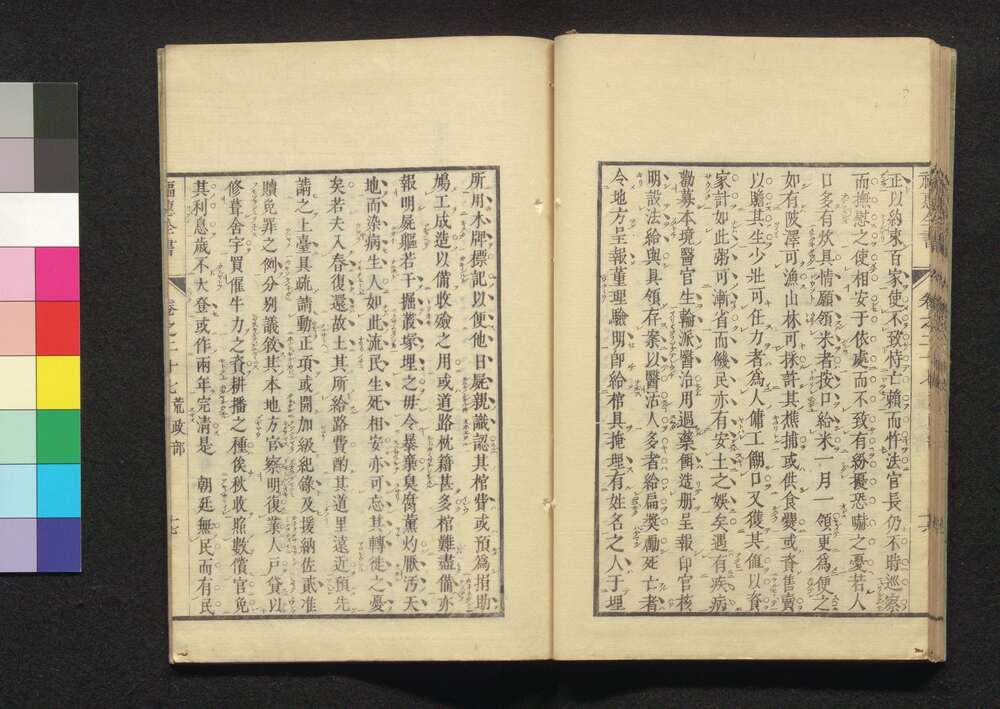 正以納束百家使不致恃亡賴而忤法官長仍不時巡察
而撫慰之使相安于依處而不致有紛擾恐嚇之憂若人
口多有炊具情願領米者按口給米一月一領更爲便之
如有陂澤可漁山林可採許其樵捕或供食爨或資售賣
以贍其生少壯可任力者爲人傭工餬口又獲其値以資
家計如此粥可漸省而饑民亦有安土之娛矣遇有疾病
勸募本境醫官生輪派醫治用過藥劑造册呈報印官核
明設法給與具領存案以醫活人多者給扁奬勵死亡者
令地方呈報董理驗明卽給棺具掩埋有姓名之人于埋
所用木牌摽記以便他日屍親識認其棺費或預爲捐助
鳩工成造以備收殮之用或道路枕籍甚多棺難盡備亦
報明屍軀若干掘叢塚埋之毋令暴棄臭腐薰灼厭汚天
地而染病生人如此流民生死相安亦可忘其轉徙之憂
矣若夫入春復還故土其所給路費酌其道里遠近預先
請之上臺具疏請動正項或開加級紀錄及援納佐貳准
贖免罪之例分别議敘其本地方官察明復業人戸貸以
修葺舍宇買僱牛力之資耕播之種俟秋收照數償官免
其利息歲不大登或作兩年完淸是　朝廷無民而有民
福惠全書　卷之二十七荒政部　十七